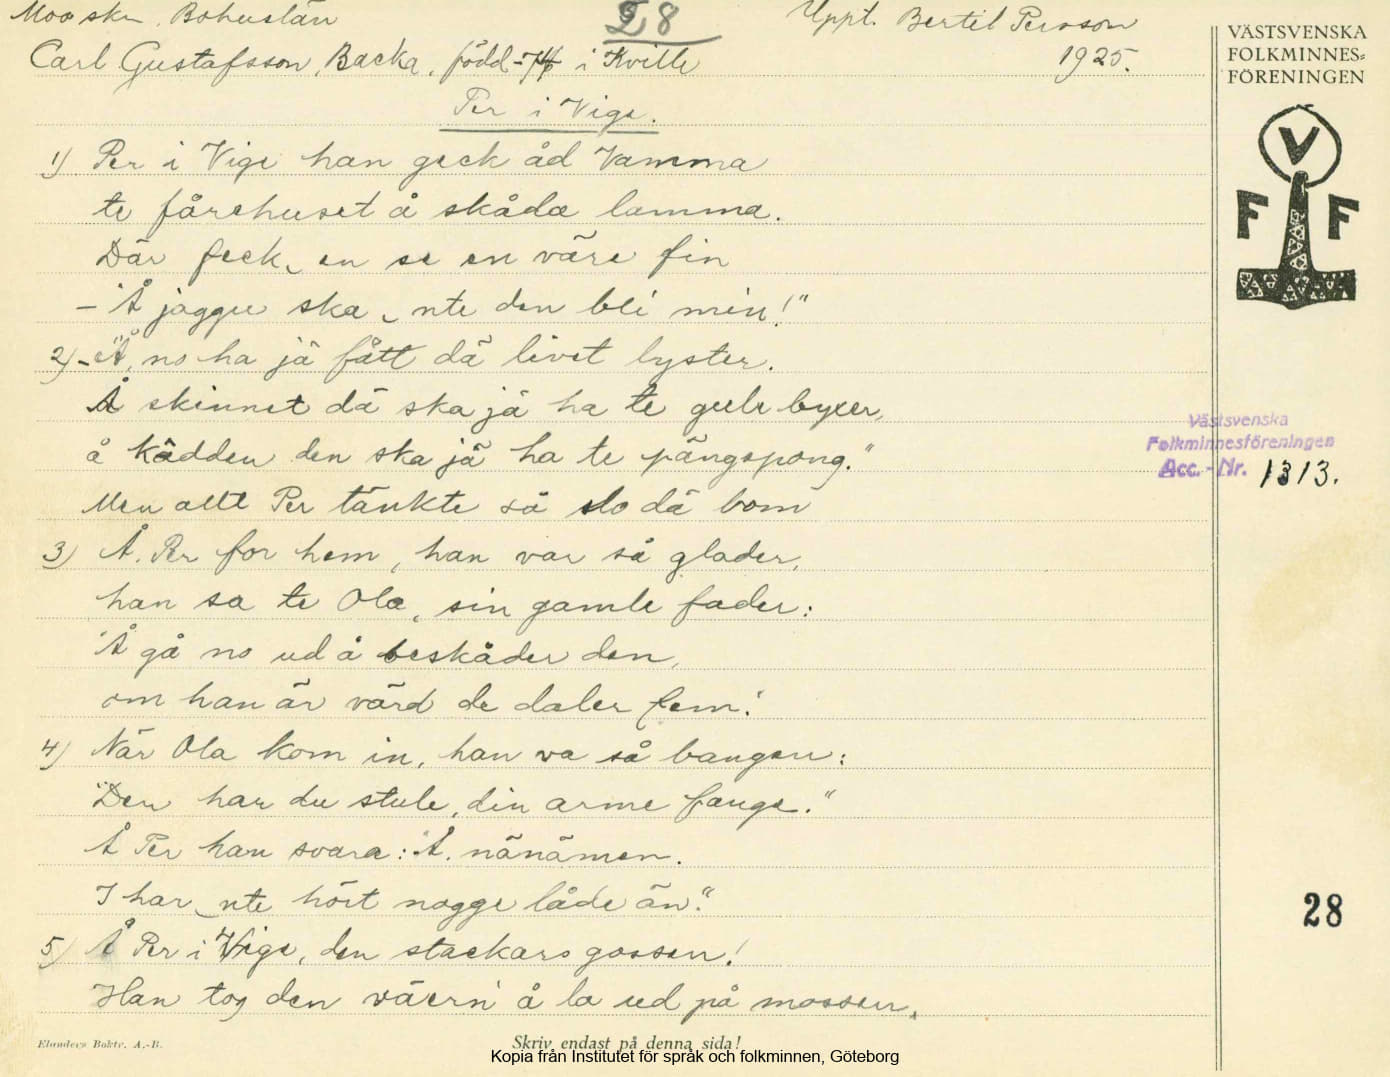 Mooskn Bohuslän
28
Uppt. Bertil Persson
1925.
Carl Gustafsson, Backa, född i Kville
Per i Vige.
1) Per i Vige han geck åd Vamma
te fårehuset å skåda lamma.
Där feck en se en väre fin
– "Å jaggu ska nte den bli min!"
2) – "Å, no ha jä fått dä livet lyster.
Å skinnet dä ska jä ha te gule byxer,
å kådden den ska jä ha te pängapong."
Men allt Per tänkte så slo dä bom
3) Å. Per for hem, han var så glader,
han sa te Ola, sin gamle fader:
"Å gå no ud å beskåder den,
om han är värd de daler fem."
4) När Ola kom in, han va så bangen:
"Den har du stule, din arme fange."
Å Per han svara: "Å. nänämen.
I har nte hört nogge låde än."
5) Å Per i Vige, den stackars gossen!
Han tog den väern å la ud på mossen.
VÄSTSVENSKA
FOLKMINNES=
FÖRENINGEN
V
F F
Västsvenska
Folkminnesföreningen
Acc.-Nr. 1313.
28
Elanders Boktr. A.-B.
Skriv endast på denna sida!
Kopia från Institutet för språk och folkminnen, Göteborg